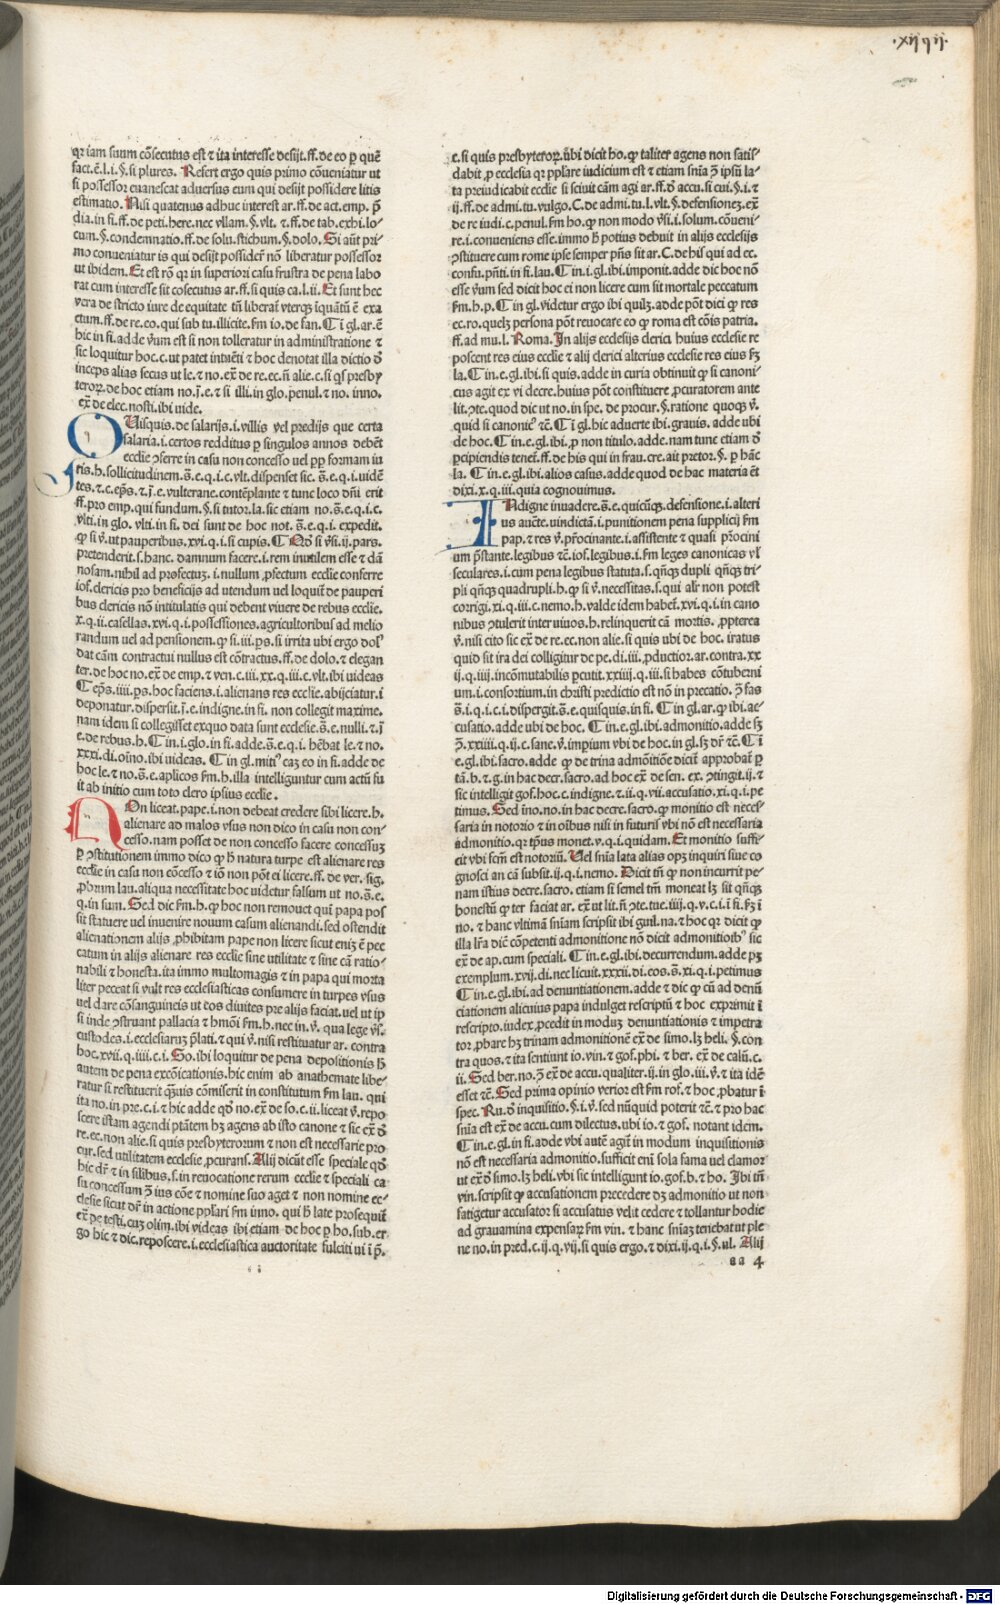 qr iam suum cōsecutus est ⁊ ita interesse desijt.ff.de eo ꝑ quē
fact.ē.l.i.§.si plures. Refert ergo quis primo cōueniatur ut
si possessor euanescat aduersus eum qui desijt possidere litis
estimatio. Nisi quatenus adhuc interest ar.ff.de act.emp. p̄
dia.in fi.ff.de peti.here.nec vllam.§.vlt.⁊.ff.de tab.exhi.lo-
cum.§.condemnatio.ff.de solu.stichum.§.dolo. Si aūt pri-
mo conueniatur is qui desijt possiderꝭ nō liberatur possessor
ut ibidem. Et est rō qꝛ in superiori casu frustra de pena labo
rat cum interesse sit cōsecutus ar.ff.si quis ca.l.ii. Et sunt hec
vera de stricto iure de equitate tn̄
ctum.ff.de re.eo.qui sub tu.illicite.fm io.de fan. ¶ī gl.ar.ē
hic in fi.adde ꝟum est si non tolleratur in administratione ⁊
sic loquitur hoc.c.ut patet
inceps alias secus ut le.⁊ no.ex̄ de re.ec.n̄ alie.c.si qs presby
teroꝝ.de hoc etiam no.j̄.e.⁊ si illi.in glo.penul.⁊ no.inno.
ex̄ de elec.nosti.ibi vide.
QUisquis.de salarijs.i.villis vel predijs que certa
salaria.i.certos redditus ꝑ singulos annos debēt
ecclie ↄferre in casu non concesso vel
ris.h.sollicitudinem.s̄.e.q.i.c.vlt.dispenset sic.s̄.e.q.i.
tes.⁊.c.ep̄s.⁊.j̄.e.vulterane.contēplante ⁊ tunc loco dn̄i erit
ff.pro emp.qui fundum.§.si tutor.la.sic etiam no.s̄.e.q.i.c.
vlti.in glo.vlti.in fi. dei sunt de hoc not.s̄.e.q.i.expedit.
ꝙ si ꝟ.ut pauperibus.xvi.q.i.si cupis.
pretenderit.s.hanc. damnum facere.i.rem inutilem esse ⁊ dā
nosam.nihil ad profectuꝫ.i.nullum ꝓfectum ecclie conferre
iof.clericis pro beneficijs ad utendum vel loquiť de pauperi
bus clericis nō intitulatis qui debent viuere de rebus ecclie.
x.q.ii.casellas.xvi.q.i.possessiones.agricultoribus ad melio
randum uel ad pensionem.ꝙ si.iii.ꝑs.si irrita ubi ergo dolꝰ
dat cām contractui nullus est cōtractus.ff.de dolo.⁊ elegan
ter.de hoc no.ex̄ de emp.⁊ ven.c.iii.xx.q.iii.c.vlt.ibi uideas
¶ ep̄s.iiii.ꝑs.hoc faciens.i.alienans res ecclie.abijciatur.i
deponatur.dispersit.j̄.e.indigne.in fi.non collegit maxime.
nam idem si collegisset exquo data sunt ecclesie.s̄.e.nulli.⁊.j̄
e.de rebus.h. ¶in.i.glo.in fi.adde.s̄.e.q.i.
xxxi.di.oīno.ibi uideas. ¶ in gl.
hoc le.⁊ no.s̄.e.aplicos fm.h.illa intelliguntur cum actū fu
it ab initio cum toto clero ipsius ecclie.
NOn liceat.pape.i.non debeat credere sibi licere.h.
alienare ad malos vsus non dico in casu non con-
cesso.nam posset de non concesso facere concessuꝫ
ꝑ ↄstitutionem immo dico ꝙ
ecclie in casu non cōcesso ⁊ iō non pōt ei licere.ff.de ver.sig.
ꝓbrum lau.aliqua necessitate hoc uidetur falsum ut no.s̄.e.
q.in sum. Sed dic fm.h.ꝙ hoc non remouet qui papa pos
sit statuere vel inuenire nouum casum alienandi.sed ostendit
alienationem alijs ꝓhibitam pape non licere sicut eniꝫ ē pec
catum in alijs alienare res ecclie sine utilitate ⁊ sine cā ratio-
nabili ⁊ honesta.ita immo multomagis ⁊ in papa qui morta
liter peccat si vult res ecclesiasticas consumere in turpes vsus
uel dare cōsanguineis ut eos diuites pre alijs faciat.uel ut ip
si inde ↄstruant pallacia ⁊ hmōi fm.h.nec in.ꝟ.qua lege
custodes.i.ecclesiaruꝫ p̄lati.⁊ qui ꝟ.nisi restituatur ar. contra
hoc.xvii.q.iiii.c.i. So.ibi loquitur de pena depositionis
autem de pena excōicationis.hic enim ab anathemate libe-
ratur si restituerit
ita no.in pre.c.i.⁊ hic adde qd̄ no.ex̄ de so.c.ii.liceat ꝟ.repo
scere istam agendi
re.ec.non alie.si quis presbyterorum ⁊ non est necessarie pro
cur.sed utilitatem ecclesie ꝓcurans. Alij dicūt esse speciale qd̄
hic dr̄ ⁊ in silibus.s.in reuocatione rerum ecclie ⁊ speciali ca
su concessum
clesie sicut dr̄ in actione
ex̄ de testi.cuꝫ olim.ibi videas ibi etiam de hoc ꝑ ho.sub.er-
go hic ⁊ dic.reposcere.i.ecclesiastica auctoritate fulciti ui
e.si quis presbyteroꝝ.
dabit ꝓ ecclesia qꝛ pplare iudicium est ⁊ etiam
ta preiudicabit ecclie si sciuit cām agi ar.ff.
ij.ff.de admi.tu.vulgo.C.de admi.tu.l.vlt.§.defensioneꝫ.ex̄
de re iudi.c.penul.fm ho.ꝙ non modo
re.i.conueniens esse.immo
ↄstituere cum rome ipse semper pn̄s sit ar.C.de his qui ad ec.
confu.pn̄ti.in fi.lau. ¶ in.i.gl.ibi.imponit.adde dic hoc nō
esse ꝟum sed dicit hoc ei non licere cum sit mortale peccatum
fm.h.p. ¶ in gl.videtur ergo ibi quilꝫ.adde pōt dici ꝙ res
ec.ro.quelꝫ persona pōt reuocare eo ꝙ roma est cōis patria.
ff.ad mu.l. Roma. In alijs ecclesijs clerici huius ecclesie re
poscent res eius ecclie ⁊ alij clerici alterius ecclesie res eius
la. ¶ in.e.gl.ibi.si quis.adde in curia obtinuit ꝙ si canoni-
cus agit ex vi decre.huius pōt constituere ꝓcuratorem ante
lit.ↄte.quod dic ut no.in spe.de procur.§.ratione quoqꝫ ꝟ.
quid si canonicꝰ ⁊c. ¶ ī gl.hic aduerte ibi.grauis.adde ubi
de hoc. ¶ in.e.gl.ibi.ꝓ non titulo.adde.nam tune etiam
ꝑcipiendis
la. ¶ in.e.gl.ibi.alios casus.adde quod de hac materia ēt
dixi.x.q.iii.quia cognouimus.
INdigne inuadere.s̄.e.quicūqꝫ.defensione.i.alteri
us aucte.uindictā.i.punitionem pena supplicij fm
pap.⁊ res ꝟ.
um p̄stante.legibus ⁊c.iof.legibus.i.fm leges canonicas vl̄
seculares.i.cum pena legibus statuta.s.qn̄qꝫ dupli qn̄qꝫ tri-
pli qn̄qꝫ quadrupli.h.ꝙ si ꝟ.necessitas.s.qui alr̄ non potest
corrigi.xi.q.iii.c.nemo.h.valde idem
nibus ↄtulerit inter uiuos.h.relinquerit cā mortis. ꝓpterea
ꝟ.nisi cito sic ex̄ de re.ec.non alie.si quis ubi de hoc. iratus
quid sit ira dei colligitur de pe.di.iii.ꝓductior.ar.contra.xx
ij.q.iiij.incōmutabilis ꝑcutit.xxiiij.q.iii.si habes cōtuberni
um.i.consortium.in christi predictio est nō in precatio.
s̄.i.q.i.c.i.dispergit.s̄.e.quisquis.in fi. ¶ in gl.ar.ꝙ ibi.ac-
cusatio.adde ubi de hoc. ¶ in.e.gl.ibi.admonitio.adde
xxiiii.q.ij.c.sane.ꝟ.impium vbi de hoc.in gl.
e.gl.ibi.sacro.adde ꝙ de trina admōitiōe dicūt approbať ꝑ
tā.b.⁊.g.in hac decr.sacro.ad hoc ex̄ de sen.ex. ↄtingit.ij.⁊
sic intelligit gof.hoc.c.indigne.⁊.ii.q.vii.accusatio.xi.q.i.pe
timus. Sed īno.no.in hac decre.sacro.ꝙ monitio est neces-
saria in notorio ⁊ in oībus nisi in futuris vbi nō est necessaria
admonitio.qꝛ tp̄us monet.v.q.i.quidam. Et monitio suffi-
cit vbi fcm̄ est notoriū. Uel snīa lata alias opꝫ inquiri siue co
gnosci an cā subsit.ij.q.i.nemo. Dicit tn̄ ꝙ non incurrit pe-
nam istius decre.sacro. etiam si semel tm̄ moneat lꝫ sit qn̄qꝫ
honestū ꝙ ter faciat ar.ex̄
no.⁊ hanc vltimā snīam scripsit ibi guil.na.⁊ hoc qꝛ dicit ꝙ
illa lr̄a dic̄ cōpetenti admonitione nō dicit admonitioībꝰ sic
ex̄ de ap.cum speciali. ¶ in.e.gl.ibi.decurrendum.adde ꝑꝫ
exemplum.xvij.di.nec licuit.xxxii.di.eos.s̄.xi.q.i.petimus
¶ in.e.gl.ibi.ad denuntiationem.adde ⁊ dic ꝙ cū ad denū
ciationem alicuius papa indulget rescriptū ⁊ hoc exprimit ī
rescripto.iudex ꝓcedit in moduꝫ denuntiationis ⁊ impetra
tor ꝓbare hꝫ trinam admonitionē ex̄ de simo.lꝫ heli. §.con
tra quos.⁊ ita sentiunt io.vin.⁊ gof.phi.⁊ ber. ex̄ de calū.c.
ii. Sed ber.no.
esset ⁊c. Sed prima opinio verior est fm rof.⁊ hoc ꝓbatur ī
spec. Ru.
snīa est ex̄ de accu.cum dilectus.ubi io.⁊ gof. notant idem.
¶ in.e.gl.in fi.adde vbi autē agiť in modum inquisitionis
nō est necessaria admonitio.sufficit enī sola fama uel clamor
ut ex̄ d̄ simo.lꝫ heli.vbi sic intelligunt io.gof.b.⁊ ho. Ibi tn̄
vin.scripsit ꝙ accusationem precedere dꝫ admonitio ut non
fatigetur accusator si accusatus velit cedere ⁊ tollantur hodie
ad grauamina expensaꝝ fm vin.⁊ hanc snīaꝫ tenebat ut ple
ne no.in pred.c.ij.q.vij.si quis ergo.⁊ dixi.ij.q.i.§.ul. Alij
aa 4
Digitalisierung gefördert durch die Deutsche Forschungsgemeinschaft - DFG